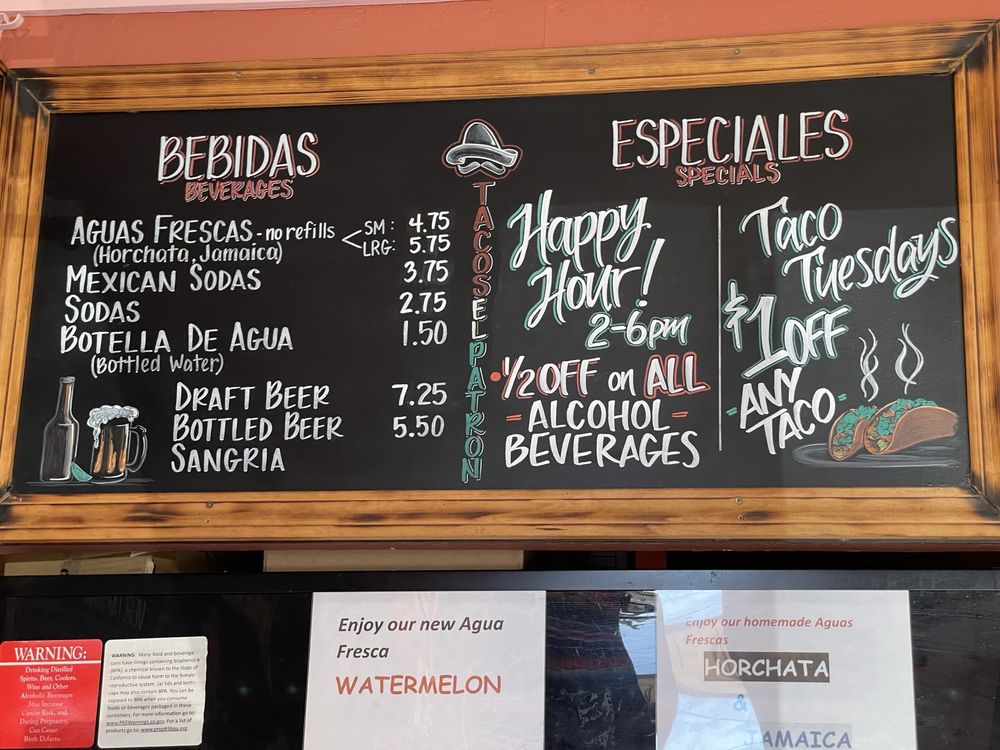 BEBIDAS
BEVERAGES
AGUAS FRESCAS - no refills < SM: 4.75
LRG: 5.75
(Horchata, Jamaica)
MEXICAN SODAS 3.75
SODAS 2.75
BOTELLA DE AGUA 1.50
(Bottled Water)
DRAFT BEER 7.25
BOTTLED BEER 5.50
SANGRIA
TACOS EL PATRON
ESPECIALES
SPECIALS
Happy
Hour!
2-6pm
•1/2 OFF on ALL
- ALCOHOL -
BEVERAGES
Taco
Tuesdays
$1 OFF
- ANY -
TACO
WARNING:
Drinking Distilled
Spirits, Beer, Coolers,
Wine and Other
Alcoholic Beverages
May Increase
Cancer Risk, and,
During Pregnancy,
Can Cause
Birth Defects.
WARNING: Many food and beverage
cans have linings containing bisphenol A
(BPA), a chemical known to the State of
California to cause harm to the female
reproductive system. Jar lids and bottle
caps may also contain BPA. You can be
exposed to BPA when you consume
foods or beverages packaged in these
containers. For more information go to:
www.P65Warnings.ca.gov. For a list of
products go to: www.prop65bpa.org.
Enjoy our new Agua
Fresca
WATERMELON
Enjoy our homemade Aguas
Frescas
HORCHATA
&
JAMAICA